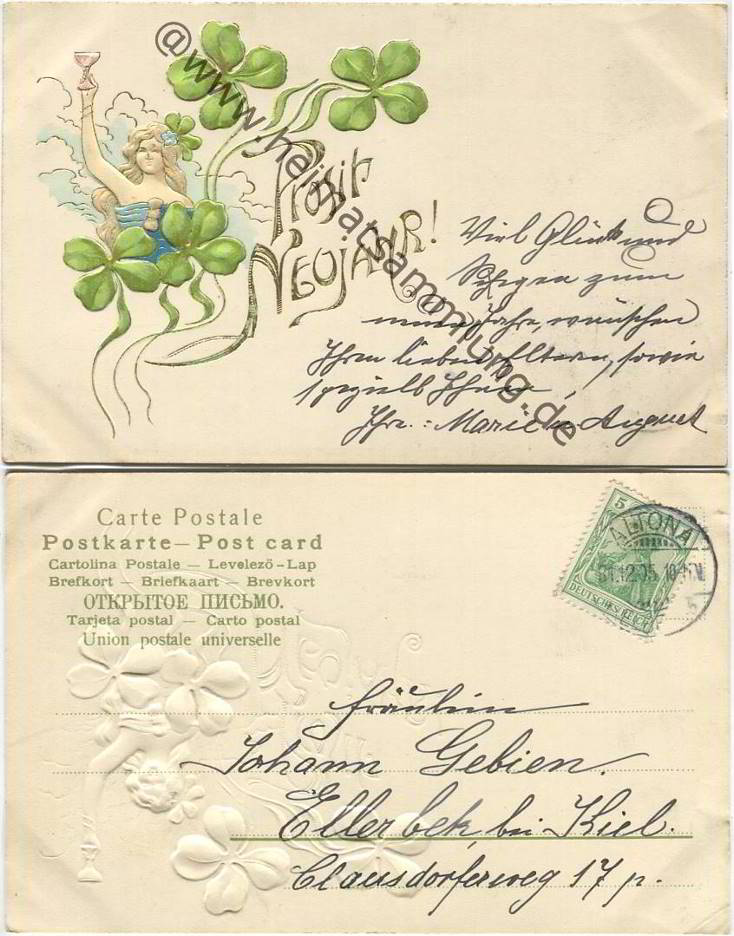 @www.heimatsammlung.de
Prosit
Neujahr!
Viel Glück und
Segen zum
neuen Jahre, wünschen
Ihren lieben Eltern, sowie
speziell Ihnen,
Ihre.: Marie u. August
Carte Postale
Postkarte — Post card
Cartolina Postale — Levelező-Lap
Brefkort — Briefkaart — Brevkort
ОТКРЫТОЕ ПИСЬМО.
Tarjeta postal — Carto postal
Union postale universelle
5
ALTONA
31.12.05. 10-11N
DEUTSCHES REICH
Fräulein
Johann Gebien.
Ellerbek, bei Kiel.
Clausdorferweg 17 p.